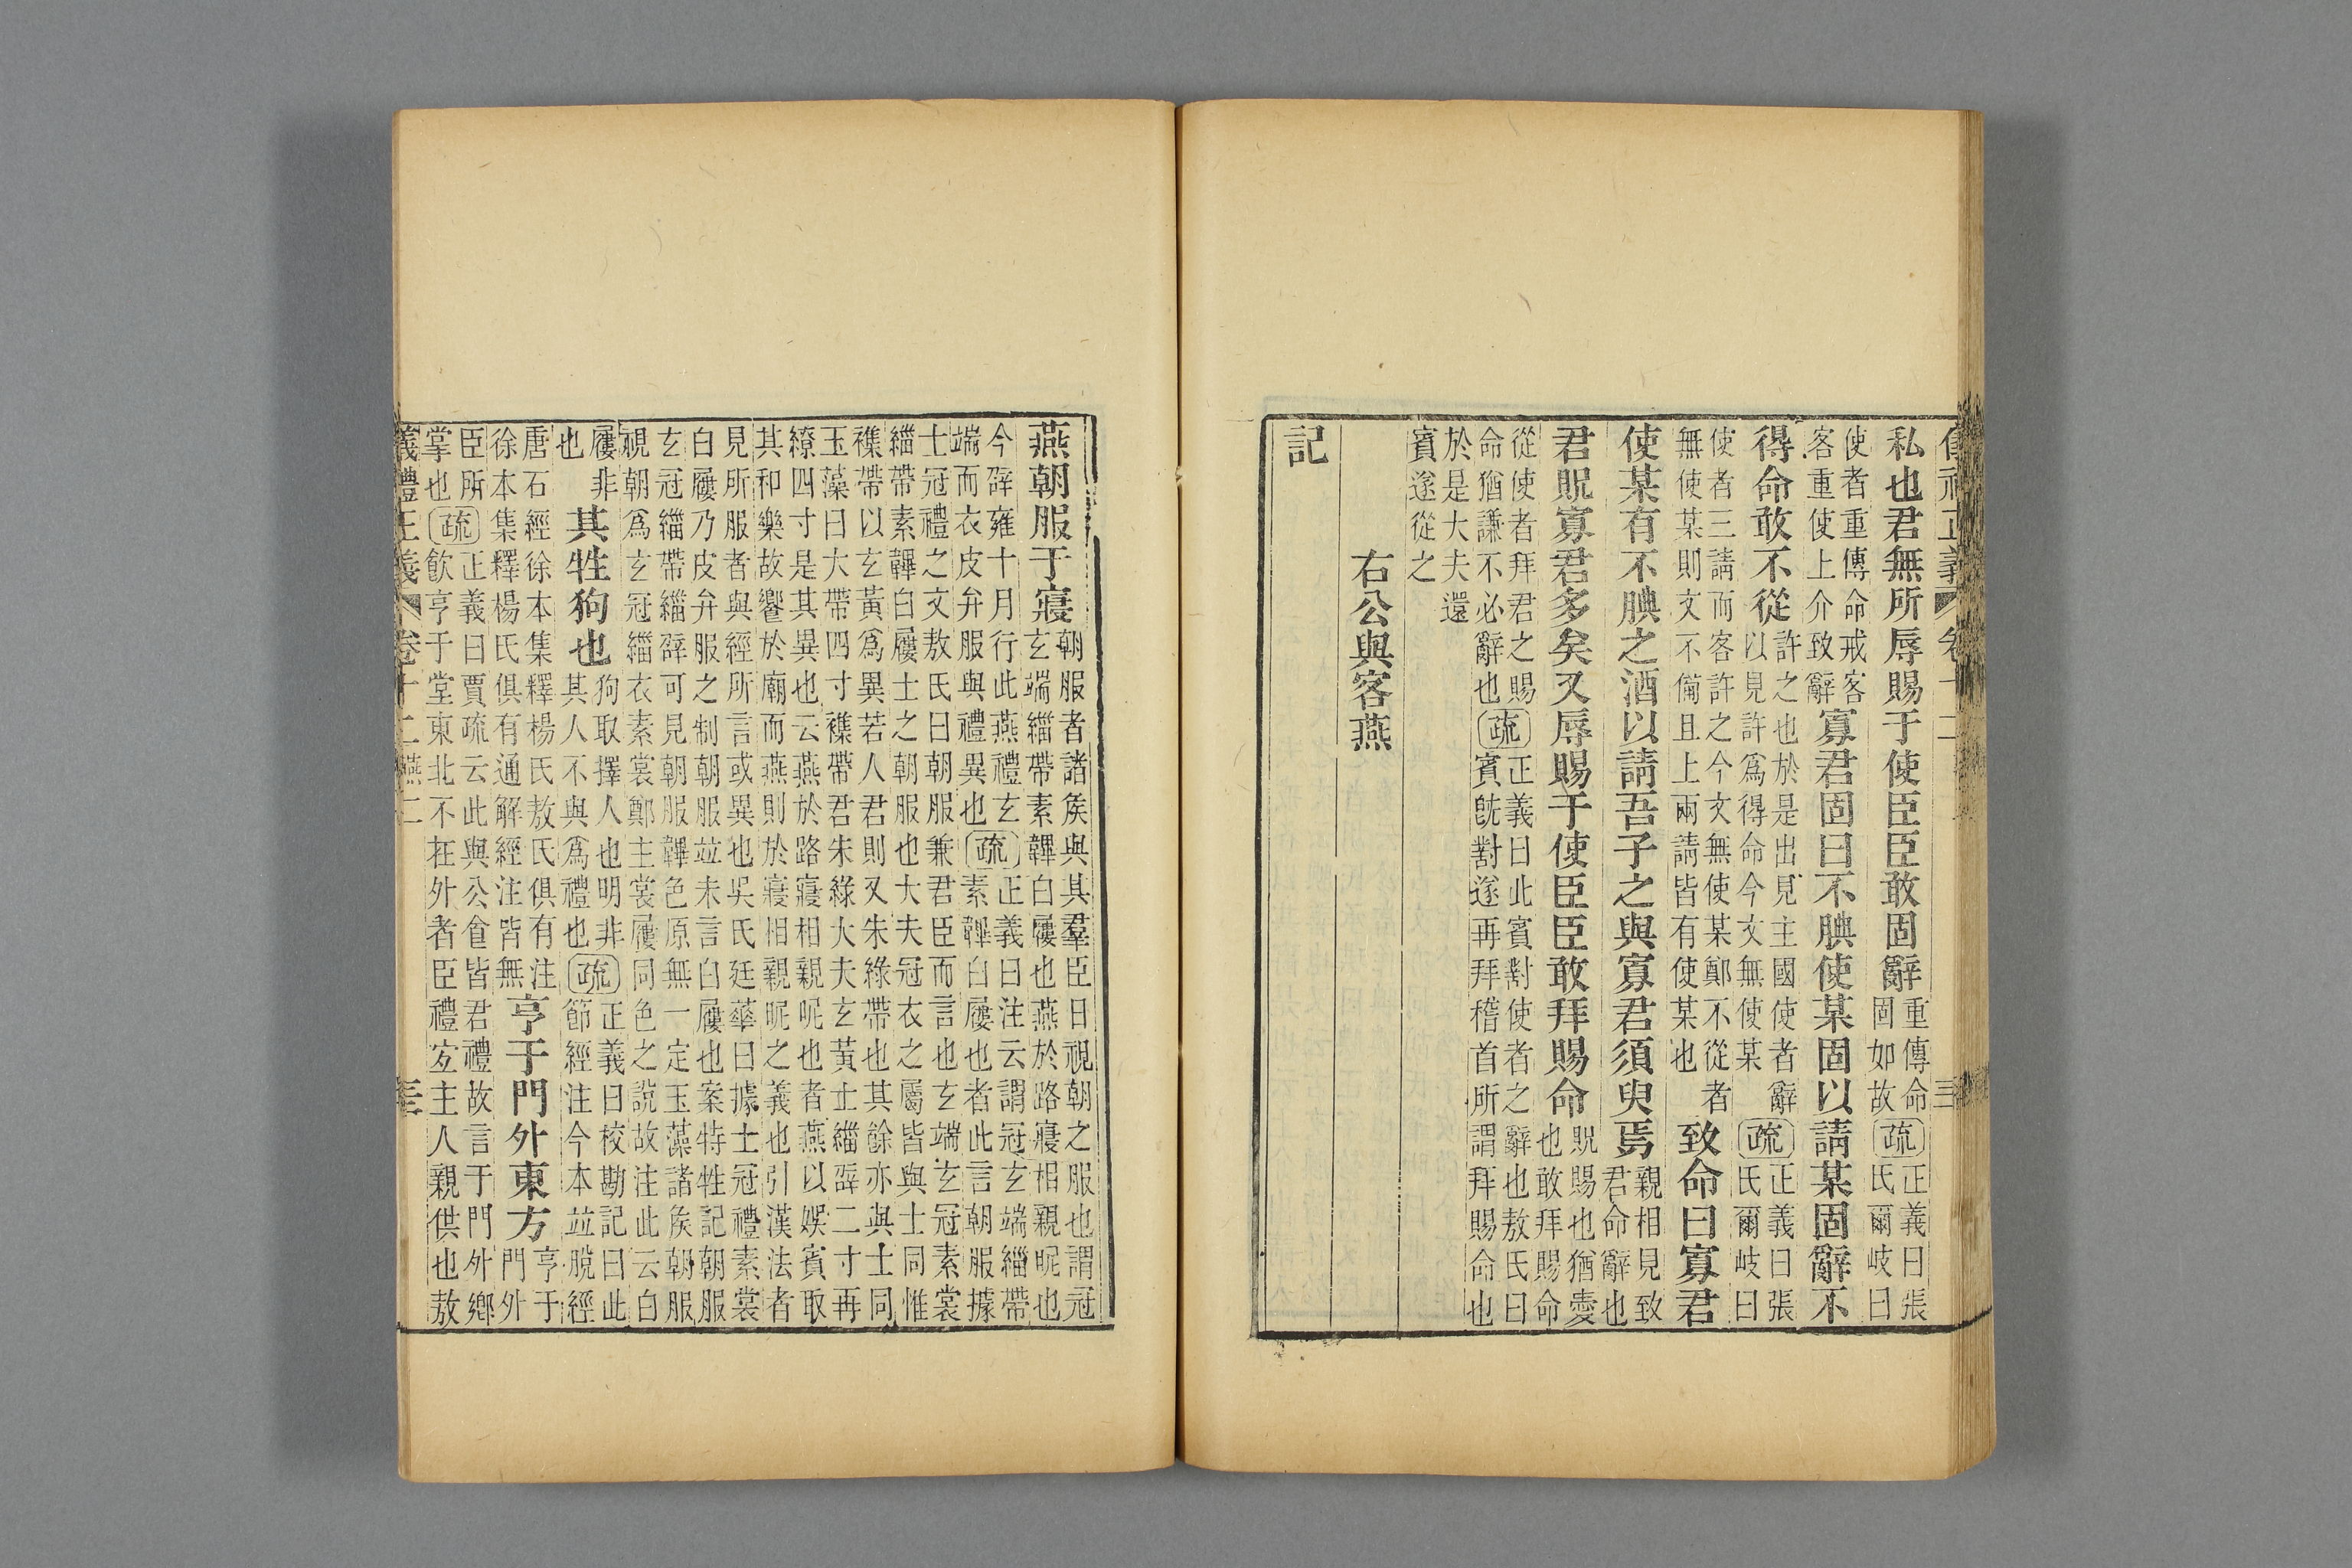 私也君無所辱賜于使臣臣敢固辭重傳命固如故疏正義曰張氏爾岐曰
使者重傳命戒客客重使上介致辭寡君固曰不腆使某固以請某固辭不
得命敢不從許之也於是出見主國使者辭以見許爲得命今文無使某疏正義曰張氏爾岐曰
使者三請而客許之今文無使某鄭不從者無使某則文不備且上兩請皆有使某也致命曰寡君
使某有不腆之酒以請吾子之與寡君須臾焉親相見致君命辭也
君貺寡君多矣又辱賜于使臣臣敢拜賜命貺賜也猶愛也敢拜賜命
從使者拜君之賜命猶謙不必辭也疏正義曰此賓對使者之辭也敖氏曰賓旣對遂再拜稽首所謂拜賜命也
於是大夫還賓遂從之
右公與客燕
記
燕朝服于寢朝服者諸矦與其羣臣日視朝之服也謂冠玄端緇帶素韠白屨也燕於路寢相親昵也
今辟雍十月行此燕禮玄端而衣皮弁服與禮異也疏正義曰注云謂冠玄端緇帶素韠白屨也者此言朝服據
士冠禮之文敖氏曰朝服兼君臣而言也玄端玄冠素裳緇帶素韠白屨士之朝服也大夫冠衣之屬皆與士同惟
襍帶以玄黃爲異若人君則又朱綠帶也其餘亦與士同玉藻曰大帶四寸襍帶君朱綠大夫玄黃士緇辟二寸再
繚四寸是其異也云燕於路寢相親昵也者燕以娛賓取其和樂故饗於廟而燕則於寢相親昵之義也引漢法者
見所服者與經所言或異也吳氏廷華曰據士冠禮素裳白屨乃皮弁服之制朝服竝未言白屨也案特牲記朝服
玄冠緇帶緇辟可見朝服韠色原無一定玉藻諸矦朝服視朝爲玄冠緇衣素裳鄭主裳屨同色之說故注此云白
屨非也其牲狗也狗取擇人也明非其人不與爲禮也疏正義曰校勘記曰此節經注今本竝脫經
唐石經徐本集釋楊氏敖氏俱有注徐本集釋楊氏俱有通解經注皆無亨于門外東方亨于門外
臣所掌也疏正義曰賈疏云此與公食皆君禮故言于門外鄉飮亨于堂東北不在外者臣禮宐主人親供也敖
義禮正義 卷十二燕二